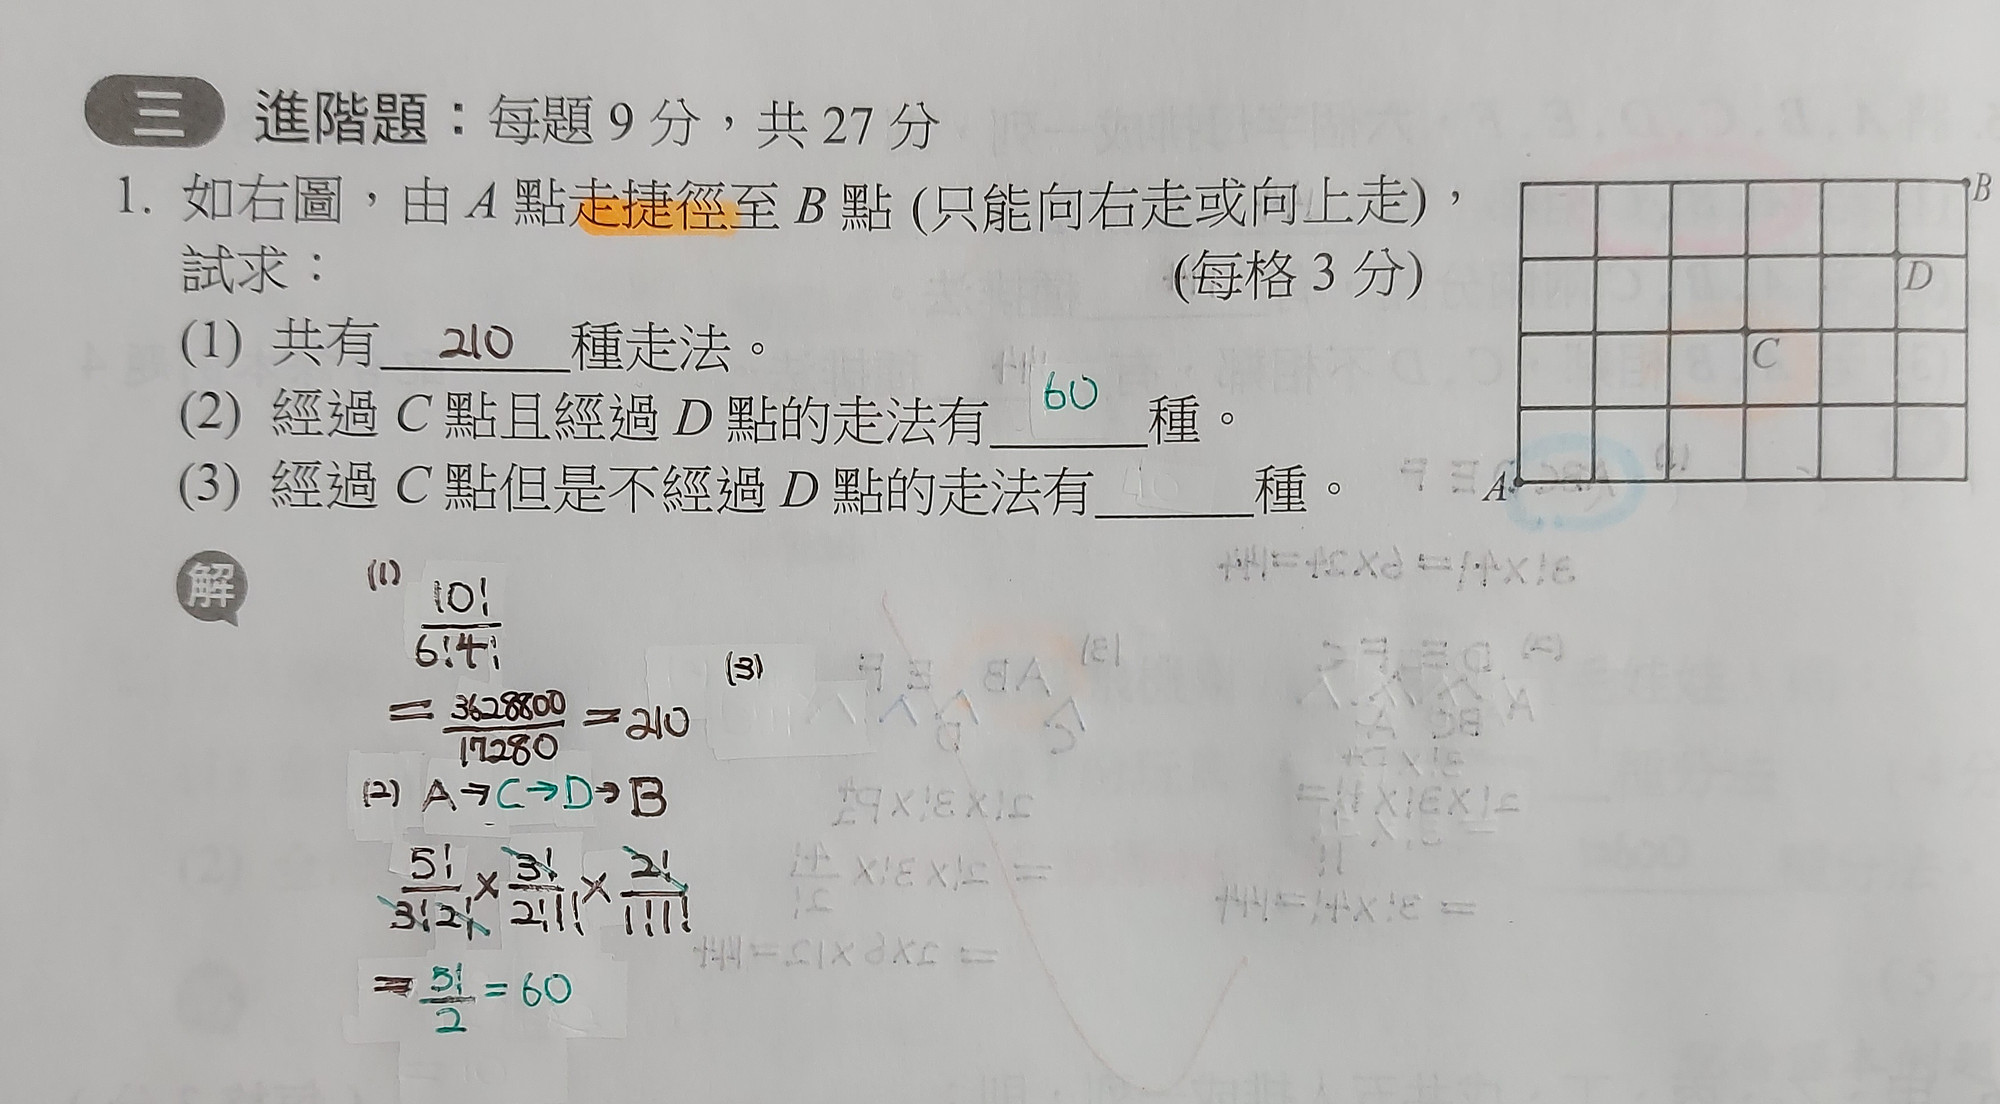 三 進階題：每題 9 分，共 27 分
1. 如右圖，由 A 點走捷徑至 B 點 (只能向右走或向上走)，
試求： (每格 3 分)
(1) 共有 210 種走法。
(2) 經過 C 點且經過 D 點的走法有 60 種。
(3) 經過 C 點但是不經過 D 點的走法有____種。
B
D
C
A
解
(1) 10!/6!4!
= 3628800/17280 = 210
(2) A→C→D→B
5!/3!2! × 3!/2!1! × 2!/1!1!
= 5!/2 = 60
(3)